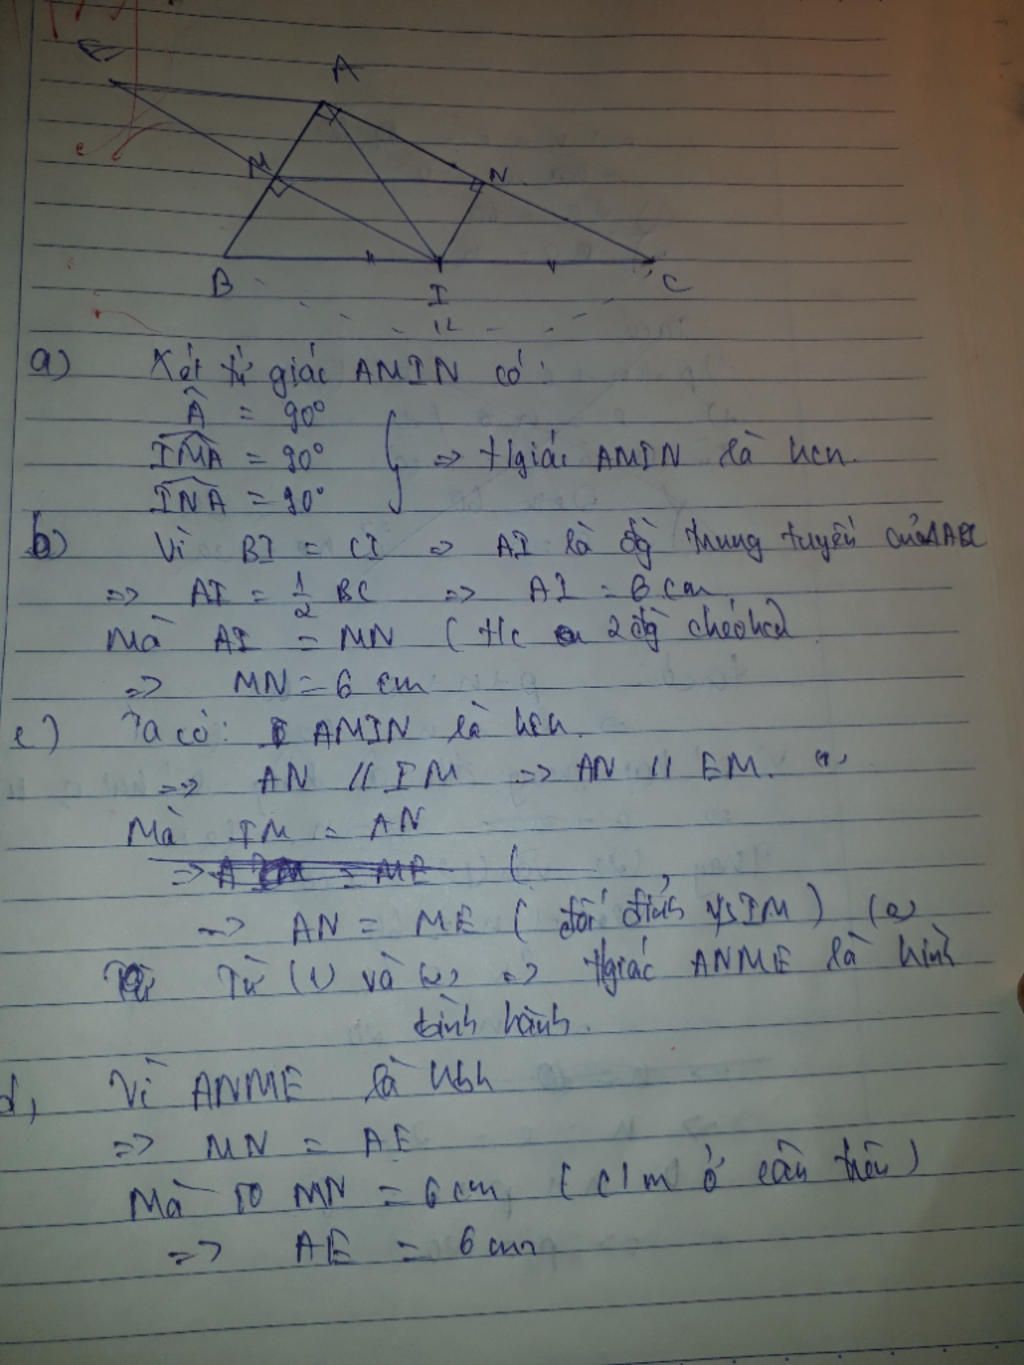 E
A
M
N
B
I
C
12
a) Xét tứ giác AMIN có:
Â = 90°
IMA = 90°
INA = 90°
=> tgiác AMIN là hcn.
b) Vì BI = CI => AI là đg trung tuyến của ΔABC
=> AI = 1/2 BC => AI = 6 cm
Mà AI = MN (t/c 2 đg chéo hcn)
=> MN = 6 cm
c) Ta có: AMIN là hcn.
=> AN // IM => AN // EM. (1)
Mà IM = AN
=> AN = ME (đối đỉnh vs IM) (2)
Từ (1) và (2) => tgiác ANME là hình
bình hành.
d, Vì ANME là hbh
=> MN = AE
Mà MN = 6 cm (c/m ở câu trên)
=> AE = 6 cm